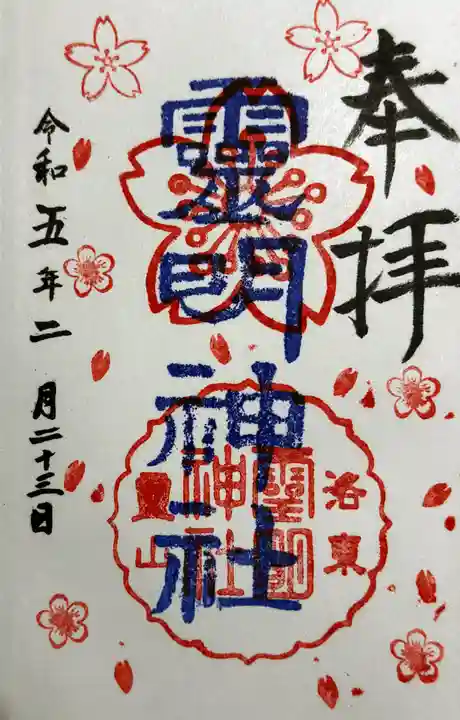 奉拝
靈明神社
洛東
靈明
神社
霊山
令和五年二月二十三日